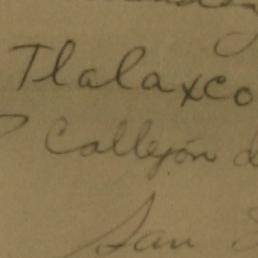 Tlalaxco
Callejón d
San